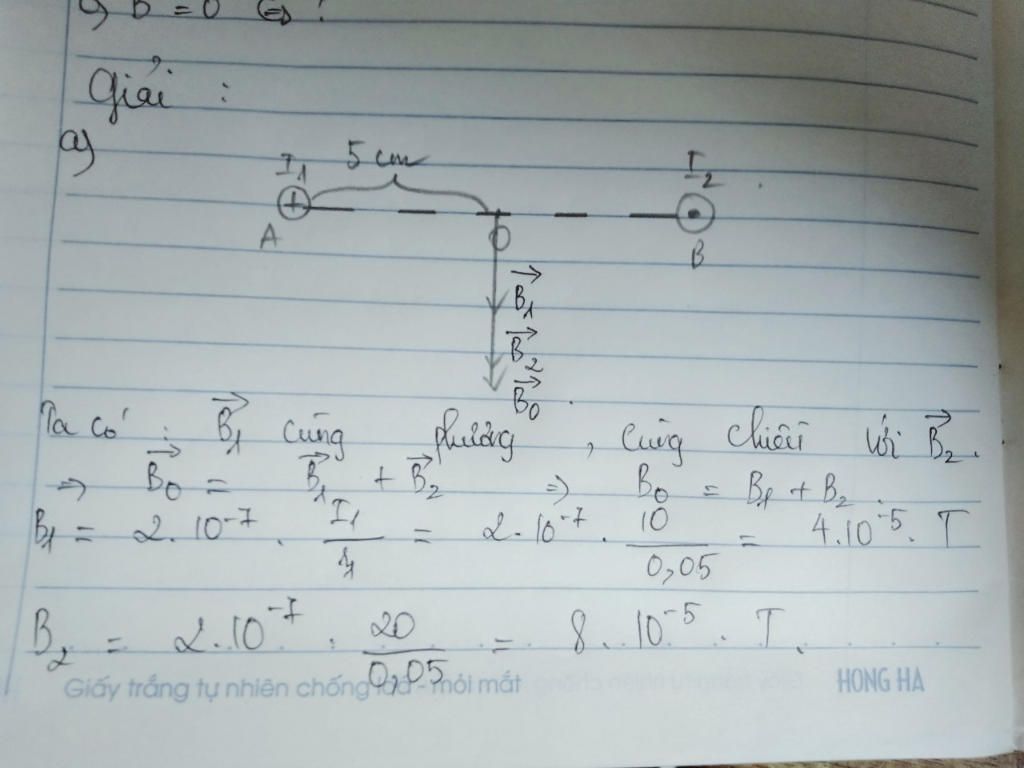 c) B = 0 <=> ?
Giải :
a)
I₁ 5 cm I₂
A O B
B₁⃗
B₂⃗
B₀⃗
Ta có : B₁⃗ cùng phương , cùng chiều với B₂⃗.
=> B₀⃗ = B₁⃗ + B₂⃗ => B₀ = B₁ + B₂.
B₁ = 2.10⁻⁷ . I₁/r₁ = 2.10⁻⁷ . 10/0,05 = 4.10⁻⁵. T
B₂ = 2.10⁻⁷ . 20/0,05 = 8.10⁻⁵. T.
Giấy trắng tự nhiên chống loá - mỏi mắt HONG HA